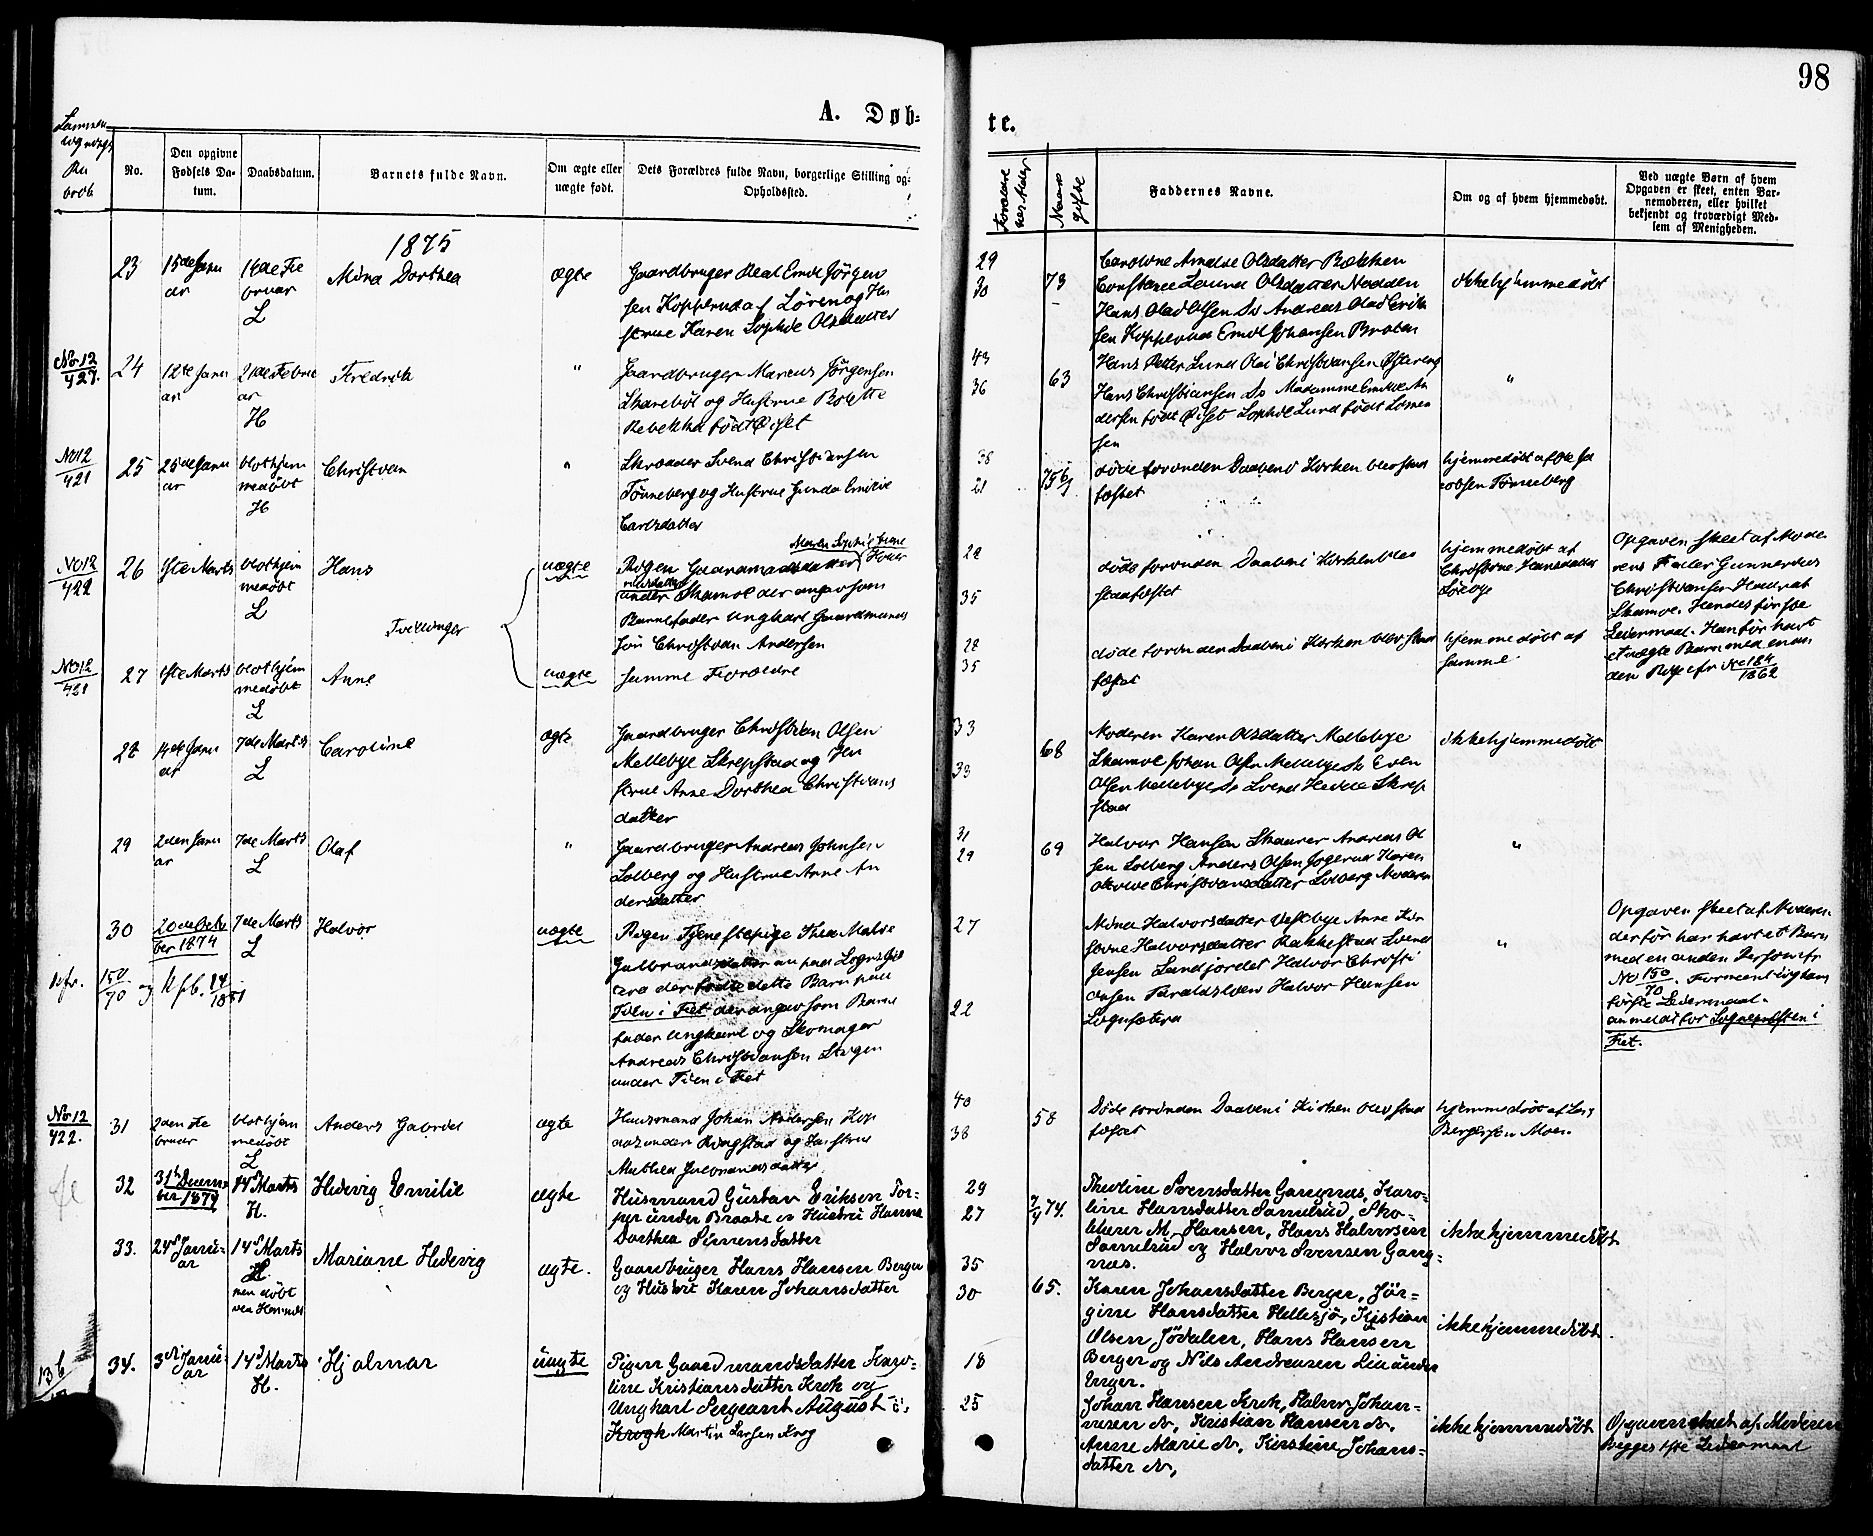 98
A. Døb-
te.
No.
Den opgivne
Fødsels Da-
tum.
Daabsdatum.
Barnets fulde Navn.
Om ægte eller
uægte født.
Dets Forældres fulde Navn, borgerlige Stilling og
Opholdssted.
Faddernes Navne.
Om og af hvem hjemmedøbt.
Ved uægte Børn af hvem
Opgaven er skeet, enten Bar-
nemoderen, eller hvilket
bekjendt og troværdigt Med-
lem af Menigheden.
1875
23
15de Janu
ar
14de Fe
bruar
L
Mina Dorthea
ægte
Gaardbruger Emil Jörgen
sen Kopperud af Lören og Hu
strue Karen Sophie Olsdatter
29
30
73
Hans Olaf Olsen Do Andreas Olaf Erik
sen Kopperud Emil Johansen Braten
ikkehjemmedøbt
No 12
427.
24
12te Janu
ar
21de Febru
ar
H
Fredrik
"
Gaardbruger Marcus Jörgensen
Skarebøl og Hustrue Bolette
Rebekka født Öiset
43
36
63
Hans Petter Lund Ole Christiansen
Hans Christiansen Do Madamme Emilie An
dersen født Öiset Sophie Lund født
sen
"
No 12
421
25
25de Janu
ar
blot hjem
medøbt
H
Christian
"
Skrædder Svend Christiansen
Tönneberg og Hustrue Gunda Emilie
Carlsdatter
38
21
døde forinden Daaben i Kirken blev stad
fæstet
hjemmedøbt af Ole Ja
cobsen Tönneberg
No 12
422
26
1ste Marts
blot hjem
medøbt
L
Hans
Tvillinger
uægte
Pigen Gaardmandsdatter
under Skamol der angav som
Barnefader Ungkarl Gaardmands
Sön Christian Andersen
28
35
døde forinden Daaben i Kirken blev
stadfæstet
hjemmedøbt af
Christine Hansdatter
Opgaven skeet af Mode
rens Fader Gunnerius
Christiansen
Skamol. Hendes første
Leiermaal. Han før havt
et uægte Barn med en an
den Pige cfr No 184
1862
No 12
421
27
1ste Marts
blot hjem
medøbt
L
Anne
uægte
samme Forældre
28
35
døde forinden Daaben i Kirken blev stad
fæstet
hjemmedøbt af
samme
28
14de Janu
ar
7de Marts
L
Caroline
ægte
Gaardbruger Christian Olsen
Mellebye Skrepstad og Hu
strue Anne Dorthea Christians
datter
33
33
68
Moderen Karen Olsdatter Mellebye
Skamol Johan Olsen Mellebye Do Even
Olsen Mellebye Do Svend Skrep
stad
ikkehjemmedøbt
29
2den Janu
ar
7de Marts
L
Olaf
"
Gaardbruger Andreas Johnsen
Solberg og Hustrue Anne An
dersdatter
31
29
69
Halvor Hansen Skaarer Andreas Ol
sen Solberg Anders Olsen Jogerud Karen
Christiansdatter Solberg Moderen
"
30
20de Octo
ber 1874
7de Marts
L
Halvor
uægte
Pigen Tjenestepige Thea Malie
Gulbrandsdatter
der fødte dette Barn paa
Tien i Fet der angav som Barne
fader Ungkarl og Skomager
Andreas Christiansen Stegen
under Tien i Fet
27
22
Mina Halvorsdatter Vestbye Anne Kir
stine Halvorsdatter Rakkestad Svend
Jensen Sundjordet Halvor Christi
ansen Taraldsløen Halvor Hansen
"
Opgaven skeet af Moderen
der før har havt et Barn
med en anden Person cfr
No 150
70
. Formeentlig hans
første Leiermaal.
anmeldt for Sognepresten i
Fet.
cfr.
150
70
og
14
1851
No 12
422.
31
2den Fe
bruar
blot hjem
medøbt
L
Anders Gabriel
ægte
Huusmand Johan Andersen
under Ringstad og Hustrue
Mathea Gulbrandsdatter
40
38
58
Døde forinden Daaben i Kirken blev stad
fæstet
hjemmedøbt af
Bergersen Moen
32
31te Decem
ber 1874
14de Marts
H.
Hedevig Emilie
ægte
Husmand Gustav Eriksen Tor-
per under Braate og Hustru Hanna
Dorthea Simensdatter
29
27
74.
Theoline Svensdatter Gangnæs, Karo-
line Hansdatter Samelrud, Sko-
lærer M. Hansen, Hans Halvorsen
Samelrud og Halvor Svensen Gang-
næs.
ikkehjemmedöbt
33.
24de Janu-
ar
14de Marts
H.
men döbt
Mariane Hedevig
ægte.
Gaardbruger Hans Hansen Berger
og Hustru Karen Johansdatter
35
30
65.
Karen Johansdatter Berger, Jör-
gine Hansdatter Hellesjö, Kristian
Olsen Jödalen, Hans Hansen
Berger og Nils Andreasen Lia under
Unger.
ikkehjemmedöbt.
136
34.
3die Janu-
ar
14de Marts
H.
Hjalmar
uægte
Pigen Gaardmandsdatter Karo-
line Kristiansdatter Krok og
Ungkarl Sergeant August
Krogh Martin Larsen Krog
18
25
Johan Hansen Krok, Halvor Johan-
nesen do, Kristian Hansen do.
Anne Marie do, Kirstine Johans-
datter do,
ikkehjemmedöbt
Opgaven skeet af Moderen
begges 1ste Leiermaal